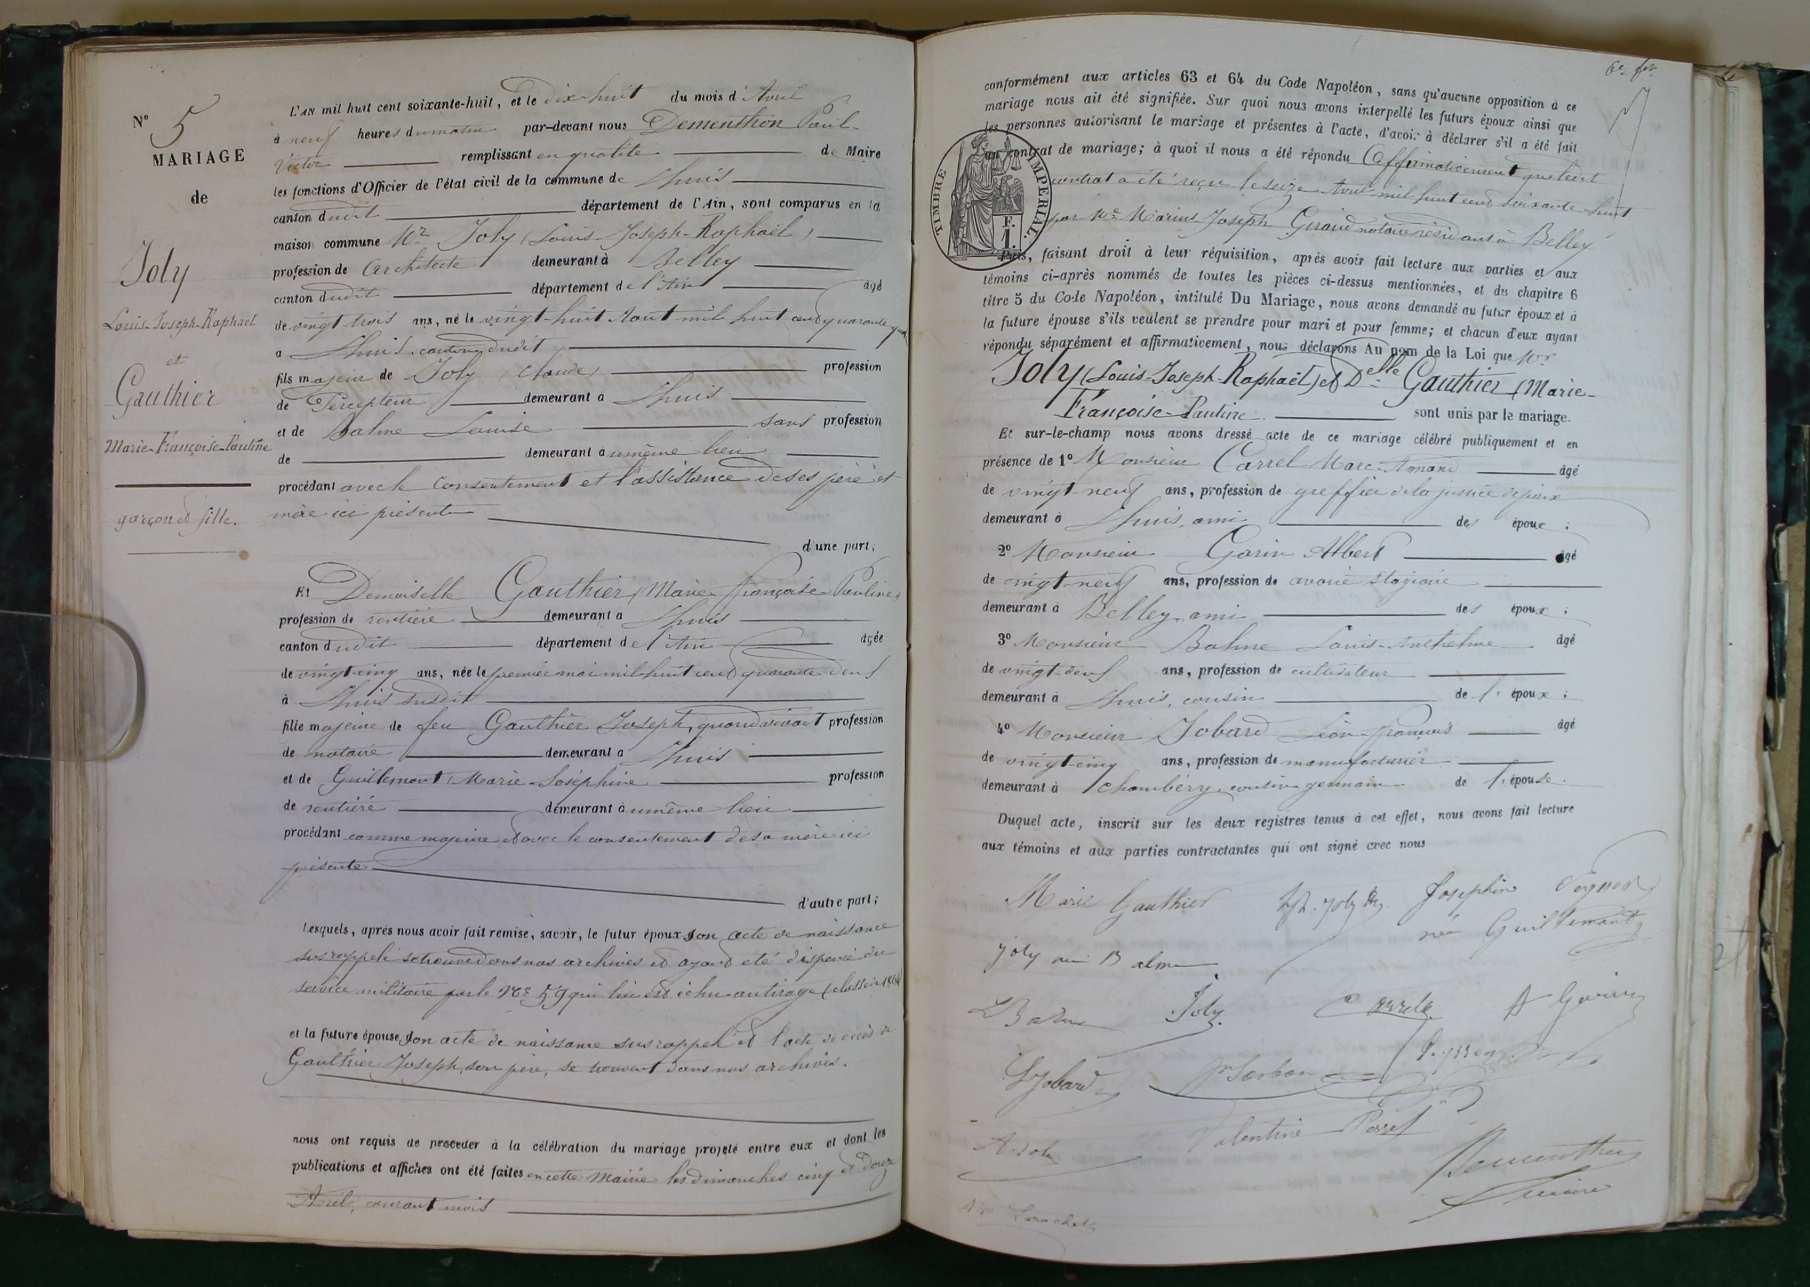 N° 5
MARIAGE
de
Joly
Louis-Joseph-Raphaël
et
Gauthier
Marie-Françoise-Pauline
garçon et fille.
L'AN mil huit cent soixante-huit, et le dix-huit du mois d'Avril
à neuf heures du matin par-devant nous Dementhon Paul-
Victor remplissant en qualité de Maire
les fonctions d'Officier de l'état civil de la commune de Lhuis
canton dudit département de l'Ain, sont comparus en la
maison commune Mr Joly (Louis-Joseph-Raphaël)
profession de architecte demeurant à Belley
canton dudit département de l'Ain âgé
de vingt trois ans, né le vingt-huit Aout mil huit cent quarante
à Lhuis, canton dudit
fils majeur de Joly (Claude) profession
de Percepteur demeurant à Lhuis
et de Balme Louise sans profession
de demeurant au même lieu
procédant avec le consentement et l'assistance de ses père et
mère ici présents
d'une part;
Et Demoiselle Gauthier (Marie-Françoise-Pauline)
profession de rentière demeurant à Lhuis
canton dudit département de l'Ain âgée
de vingt-cinq ans, née le premier mai mil huit cent quarante deux
à Lhuis susdit
fille majeure de feu Gauthier Joseph, quand vivait profession
de notaire demeurant à Lhuis
et de Guillemant Marie-Joséphine profession
de rentière demeurant au même lieu
procédant comme majeure et avec le consentement de sa mère ici
présente
d'autre part;
Lesquels, après nous avoir fait remise, savoir, le futur époux son acte de naissance
susrappelé se trouve dans nos archives et ayant été dispensé du
service militaire par le No 59 qui lui est échu au tirage (classe de 1864)
et la future épouse, son acte de naissance susrappelé et l'acte de décès de
Gauthier Joseph, son père, se trouvent dans nos archives.
nous ont requis de procéder à la célébration du mariage projeté entre eux et dont les
publications et affiches ont été faites en cette Mairie les dimanches cinq et douze
Avril, courant mois
conformément aux articles 63 et 64 du Code Napoléon, sans qu'aucune opposition à ce
mariage nous ait été signifiée. Sur quoi nous avons interpellé les futurs époux ainsi que
les personnes autorisant le mariage et présentes à l'acte, d'avoir à déclarer s'il a été fait
un contrat de mariage; à quoi il nous a été répondu Affirmativement que leur
contrat a été reçu le seize Avril mil huit cent soixante huit
par Me Marius Joseph Giraud notaire résidant à Belley
TIMBRE IMPERIAL
F.
1.
Puis, faisant droit à leur réquisition, après avoir fait lecture aux parties et aux
témoins ci-après nommés de toutes les pièces ci-dessus mentionnées, et du chapitre 6
titre 5 du Code Napoléon, intitulé Du Mariage, nous avons demandé au futur époux et à
la future épouse s'ils veulent se prendre pour mari et pour femme; et chacun d'eux ayant
répondu séparément et affirmativement, nous déclarons Au nom de la Loi que Mr
Joly (Louis-Joseph-Raphaël) et Delle Gauthier (Marie-
Françoise-Pauline sont unis par le mariage.
Et sur-le-champ nous avons dressé acte de ce mariage célébré publiquement et en
présence de 1° Monsieur Carrel Marc-Amand âgé
de vingt neuf ans, profession de greffier de la justice de paix
demeurant à Lhuis, ami des époux;
2° Monsieur Garin Albert âgé
de vingt neuf ans, profession de avoué stagiaire
demeurant à Belley, ami des époux;
3° Monsieur Balme Louis-Anthelme âgé
de vingt-deux ans, profession de cultivateur
demeurant à Lhuis, cousin de l'époux;
4° Monsieur Jobard Léon-François âgé
de vingt-cinq ans, profession de manufacturier
demeurant à Chambéry, cousin germain de l'épouse.
Duquel acte, inscrit sur les deux registres tenus à cet effet, nous avons fait lecture
aux témoins et aux parties contractantes qui ont signé avec nous
Marie Gauthier Joly Joséphine
née Guillemant
Joly née Balme
L Balme Joly Carrel A Garin
L Jobard
Valentine
A Joly Dementhon
maire